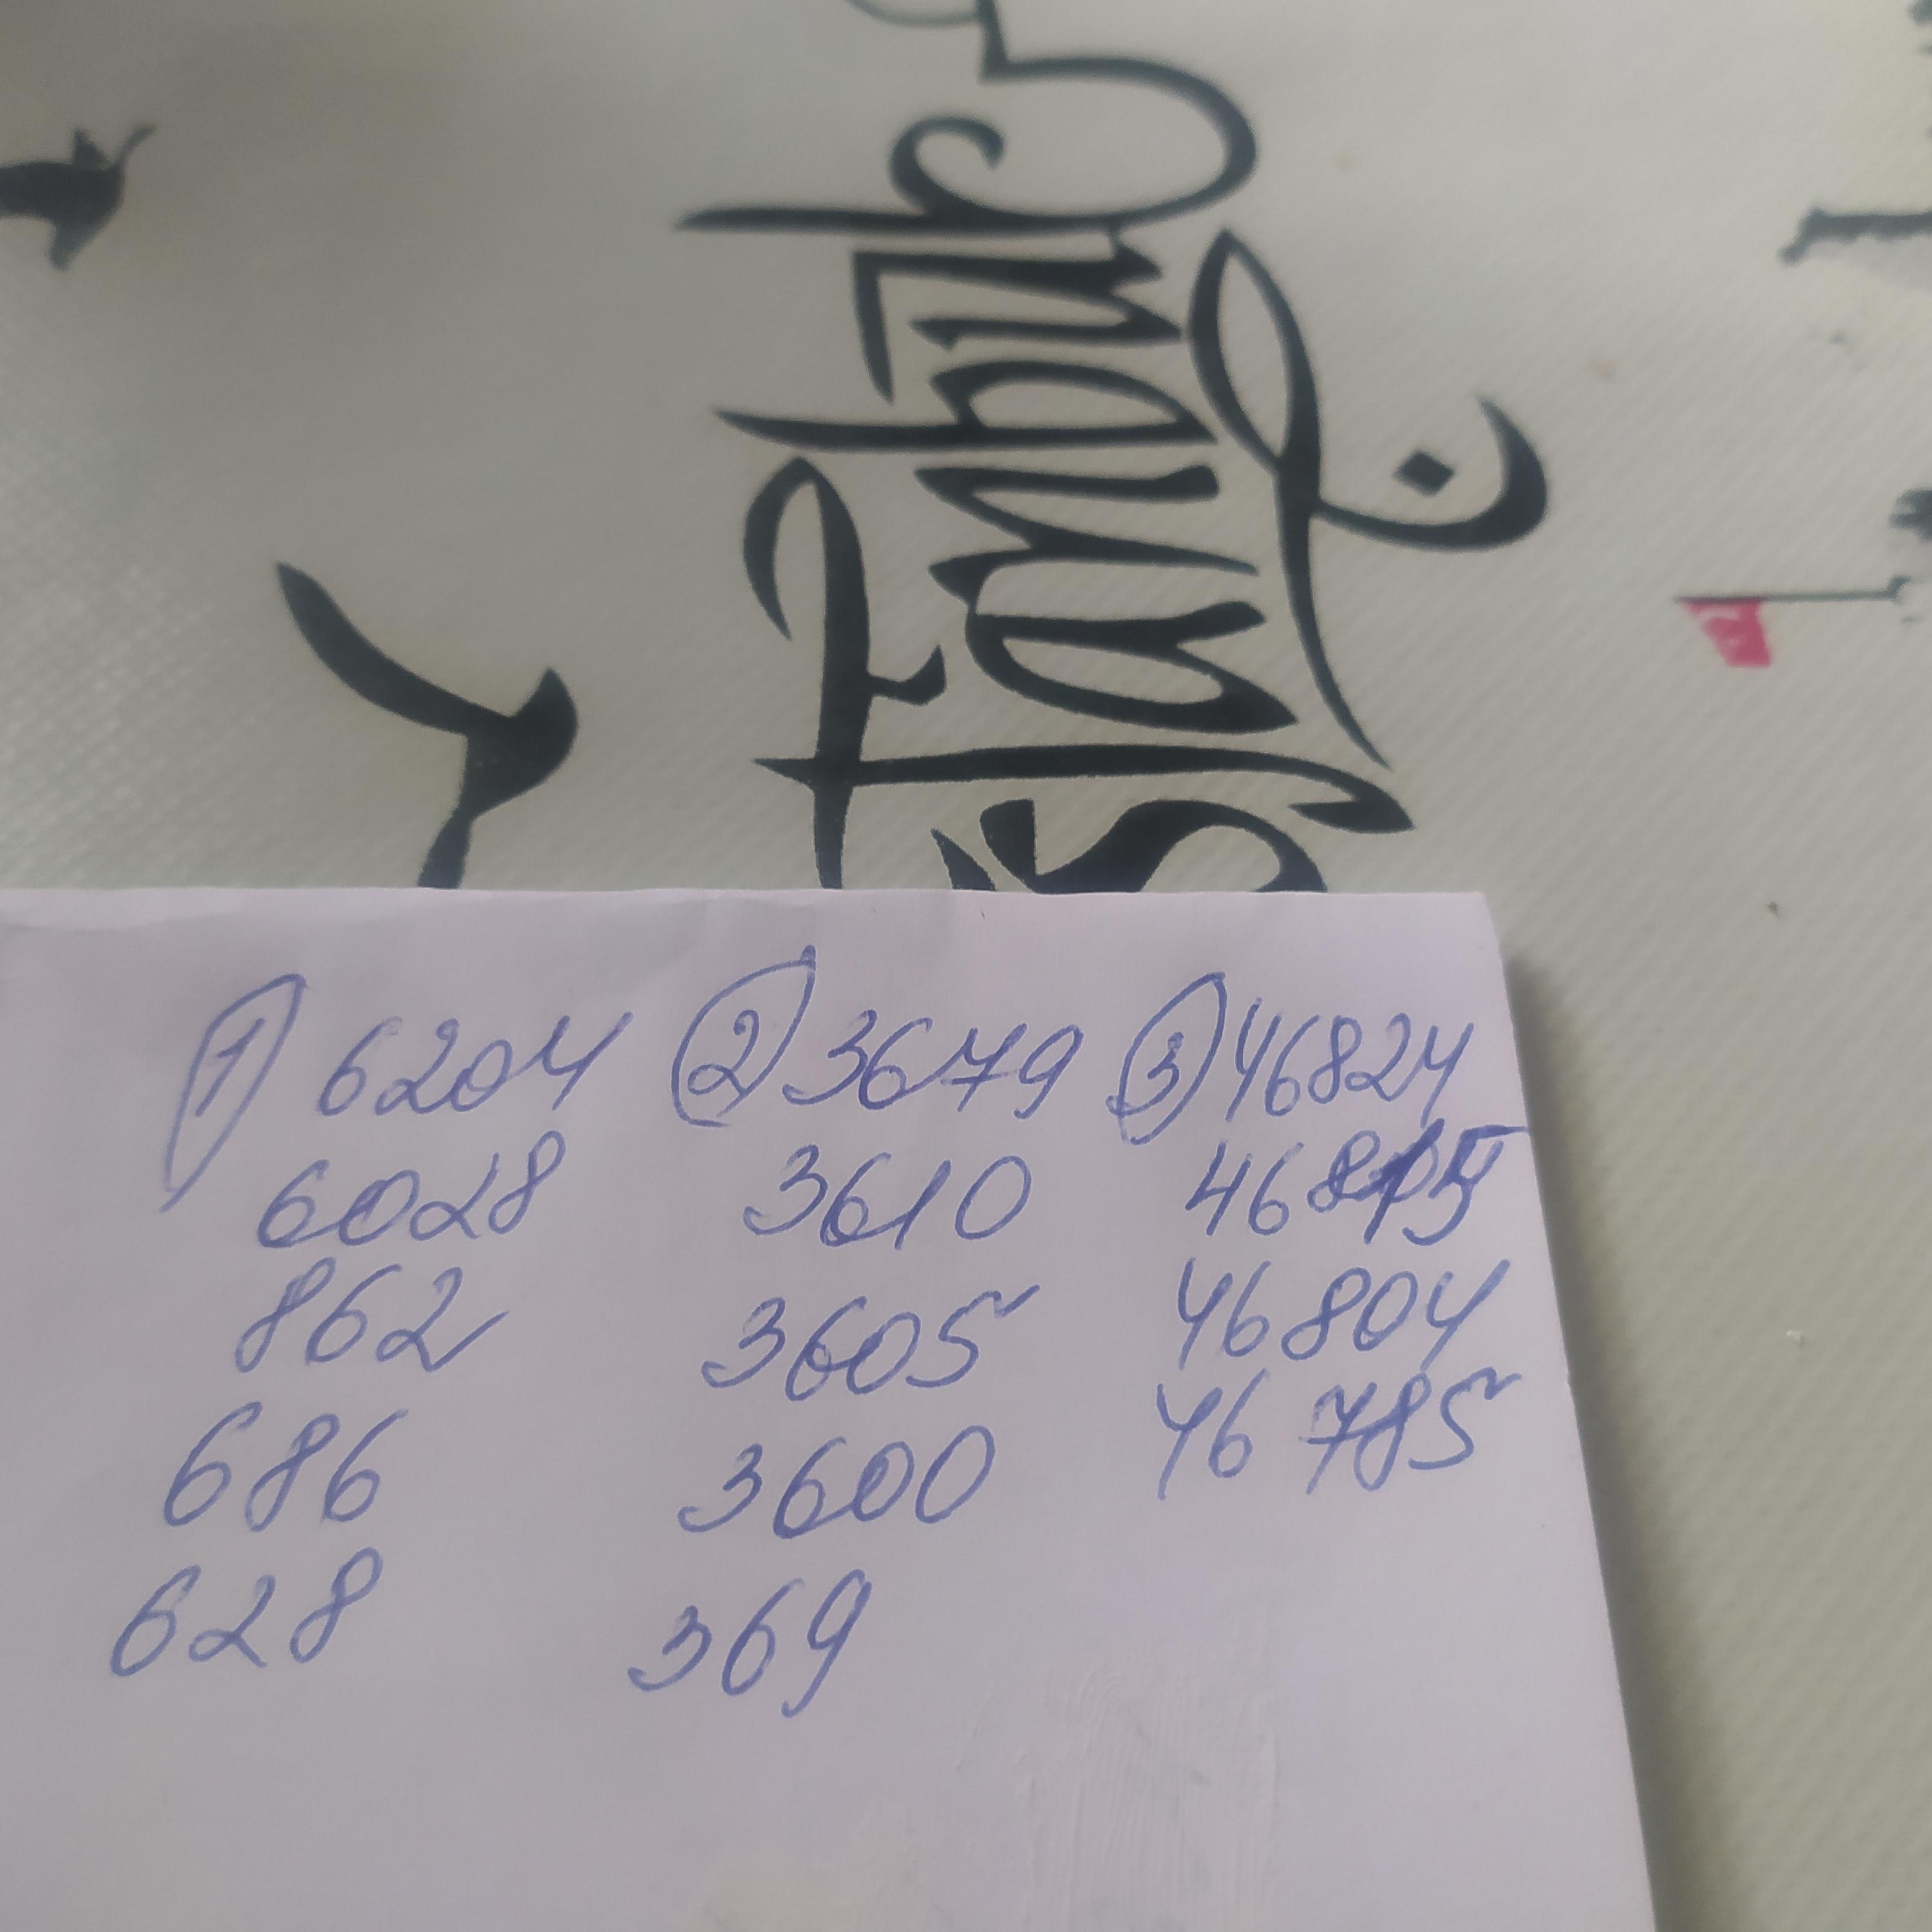 İstanbul
1 6204 2 3679 3 46824
6028 3610 46815
862 3605 46804
686 3600 46785
628 369